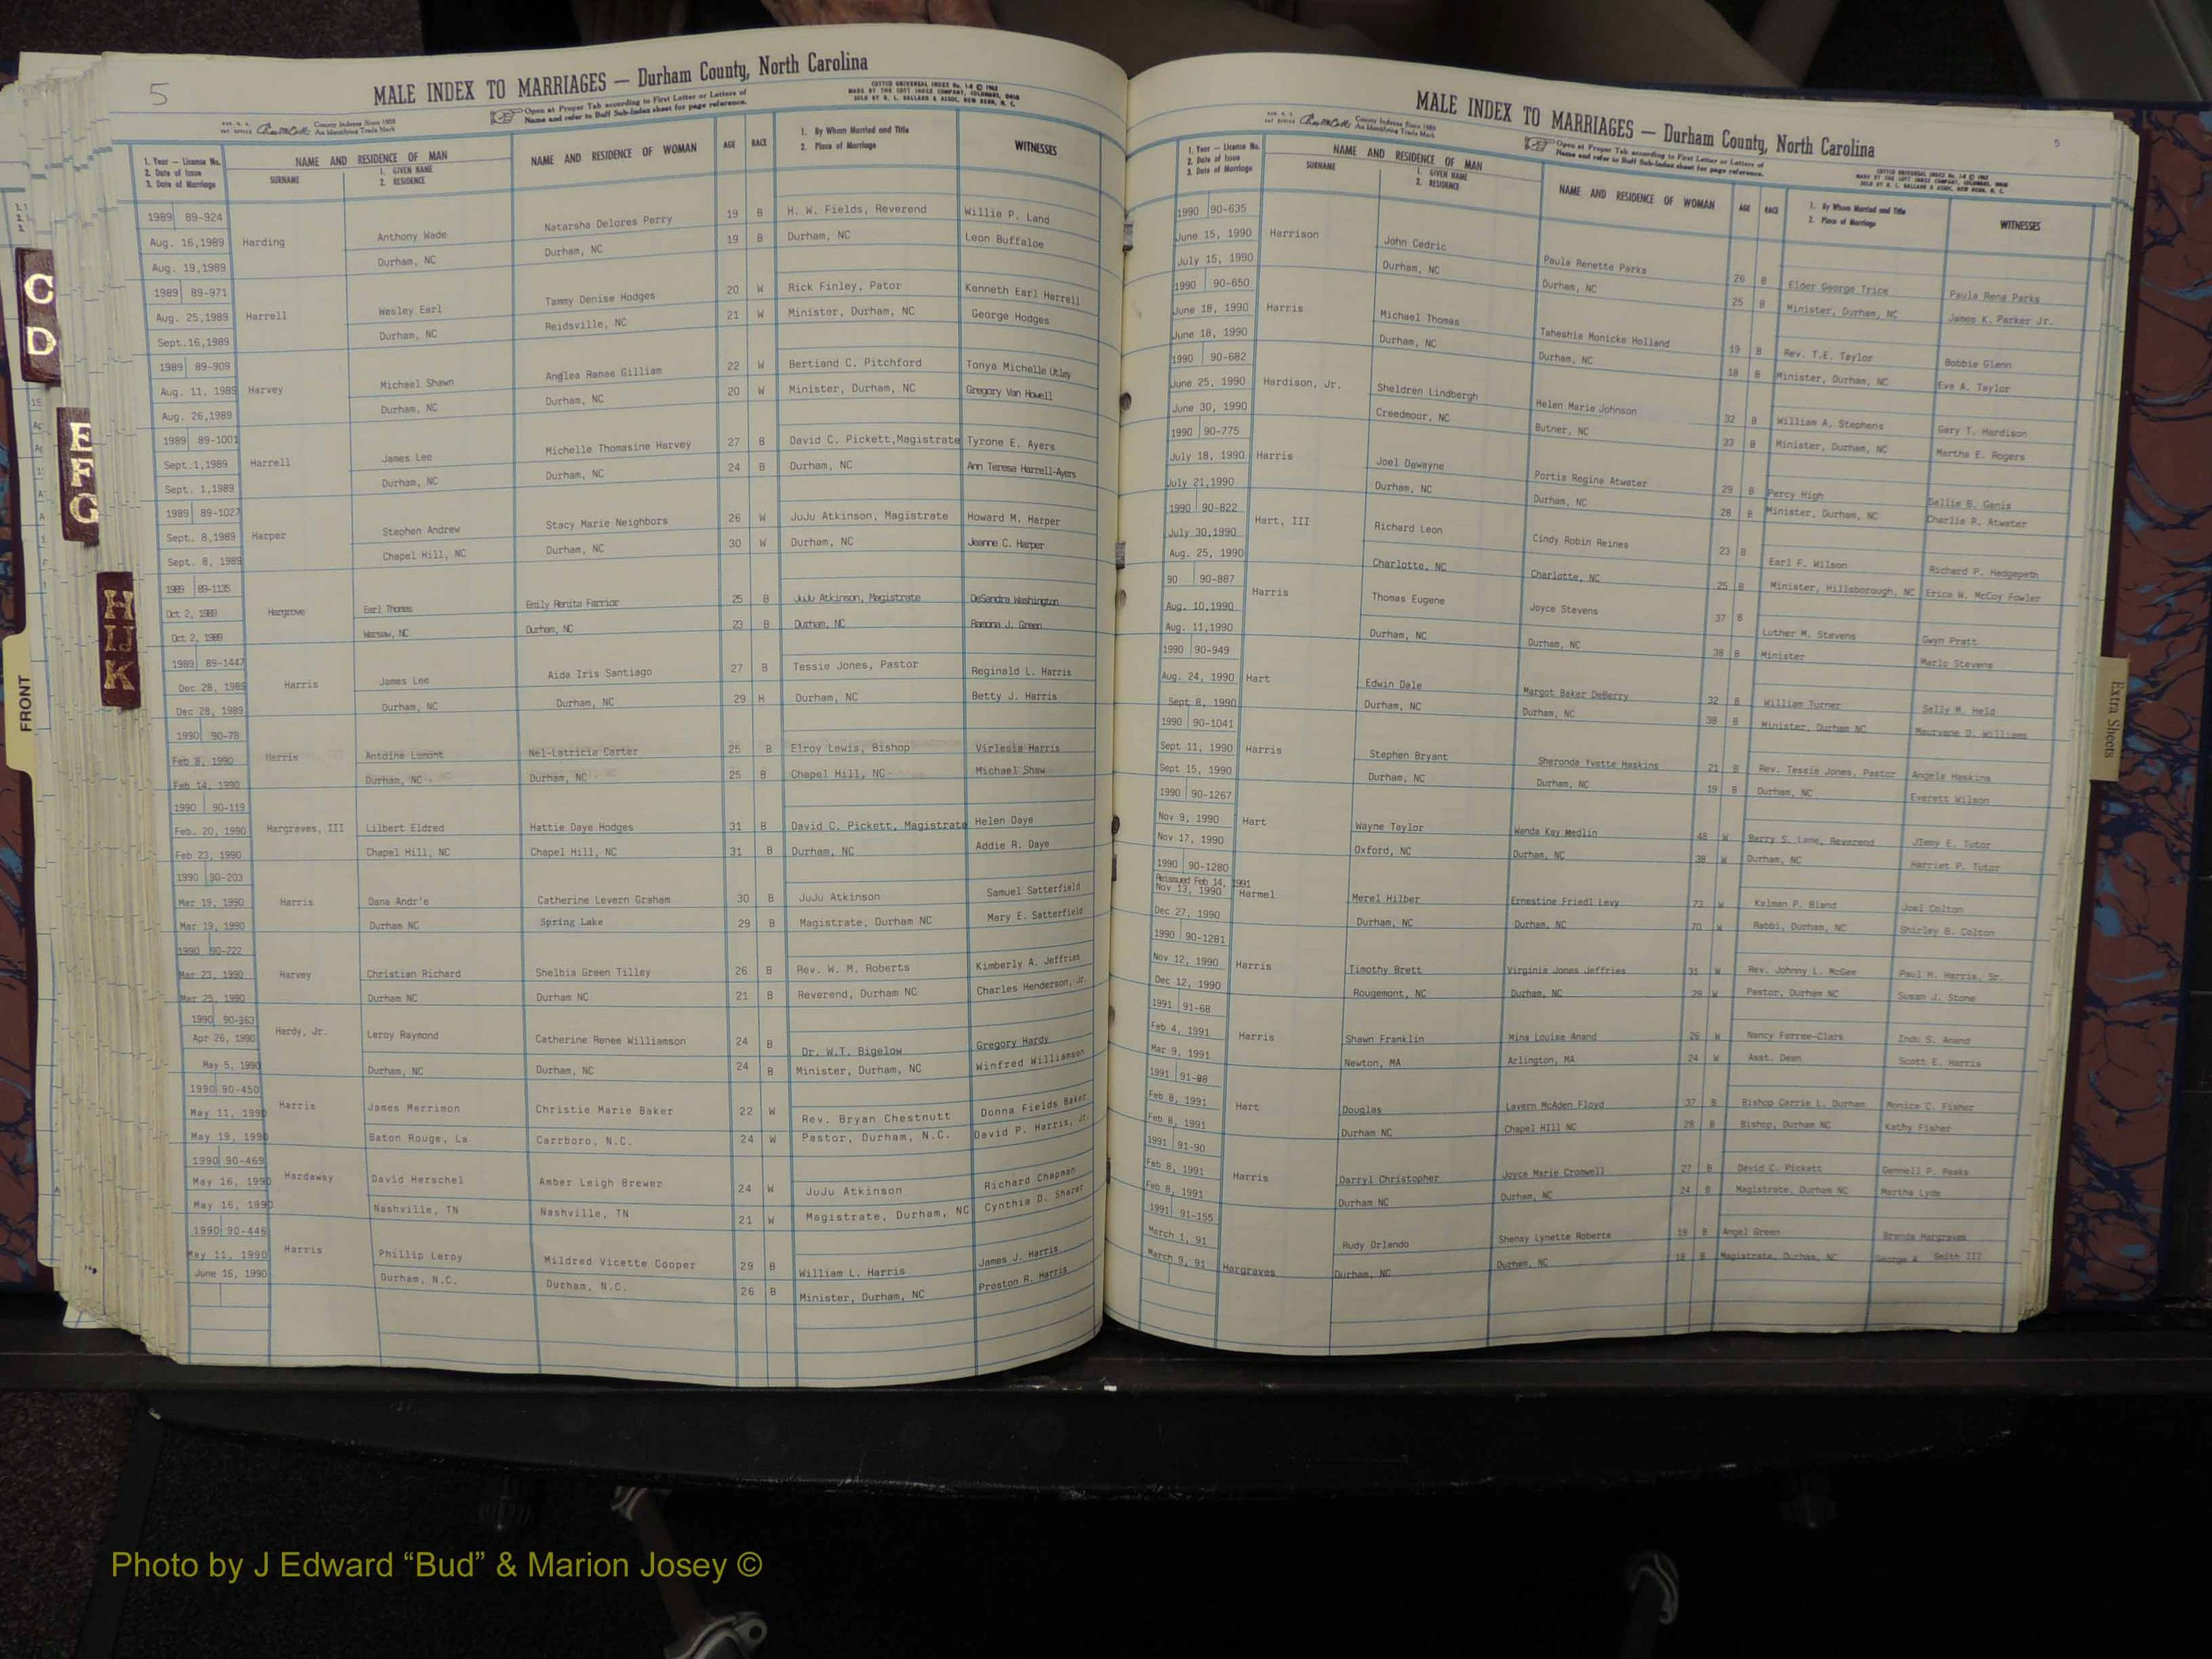 5
MALE INDEX TO MARRIAGES — Durham County, North Carolina
Open at Proper Tab according to First Letter or Letters of
Name and refer to Buff Sub-Index sheet for page reference.
COTT'S UNIVERSAL INDEX No. 1-B © 1962
MADE BY THE COTT INDEX COMPANY, COLUMBUS, OHIO
SOLD BY R. L. BALLARD & ASSOC, NEW BERN, N. C.
County Indexes Since 1888
An Identifying Trade Mark
1. Year — License No.
2. Date of Issue
3. Date of Marriage
NAME AND RESIDENCE OF MAN
SURNAME
1. GIVEN NAME
2. RESIDENCE
NAME AND RESIDENCE OF WOMAN
AGE
RACE
1. By Whom Married and Title
2. Place of Marriage
WITNESSES
1989 89-924
Natarsha Delores Perry 19 B H. W. Fields, Reverend Willie P. Land
Aug. 16,1989 Harding Anthony Wade
Durham, NC 19 B Durham, NC Leon Buffaloe
Aug. 19,1989 Durham, NC
1989 89-971
Tammy Denise Hodges 20 W Rick Finley, Pator Kenneth Earl Harrell
Aug. 25,1989 Harrell Wesley Earl
Reidsville, NC 21 W Minister, Durham, NC George Hodges
Sept.16,1989 Durham, NC
1989 89-909
Anglea Ranae Gilliam 22 W Bertiand C. Pitchford Tonya Michelle Utley
Aug. 11, 1989 Harvey Michael Shawn
Durham, NC 20 W Minister, Durham, NC Gregory Van Howell
Aug. 26,1989 Durham, NC
1989 89-1001
Michelle Thomasine Harvey 27 B David C. Pickett,Magistrate Tyrone E. Ayers
Sept.1,1989 Harrell James Lee
Durham, NC 24 B Durham, NC Ann Teresa Harrell-Ayers
Sept. 1,1989 Durham, NC
1989 89-1027
Stacy Marie Neighbors 26 W JuJu Atkinson, Magistrate Howard M. Harper
Sept. 8,1989 Harper Stephen Andrew
Durham, NC 30 W Durham, NC Jeanne C. Harper
Sept. 8, 1989 Chapel Hill, NC
1989 89-1135
Emily Renita Farrior 25 B JuJu Atkinson, Magistrate DeSandra Washington
Oct 2, 1989 Hargrove Earl Thomas
Durham, NC 23 B Durham, NC Ramona J. Green
Oct 2, 1989 Warsaw, NC
1989 89-1447
Aida Iris Santiago 27 B Tessie Jones, Pastor Reginald L. Harris
Dec 28, 1989 Harris James Leo
Durham, NC 29 H Durham, NC Betty J. Harris
Dec 28, 1989 Durham, NC
1990 90-78
Feb 8, 1990 Harris Antoine Lamont Nel-Latricia Carter 25 B Elroy Lewis, Bishop Virlesia Harris
Feb 14, 1990 Durham, NC Durham, NC 25 B Chapel Hill, NC Michael Shaw
1990 90-119
Feb. 20, 1990 Hargraves, III Lilbert Eldred Hattie Daye Hodges 31 B David C. Pickett, Magistrate Helen Daye
Feb 23, 1990 Chapel Hill, NC Chapel Hill, NC 31 B Durham, NC Addie R. Daye
1990 90-203
Mar 19, 1990 Harris Dana Andr'e Catherine Levern Graham 30 B JuJu Atkinson Samuel Satterfield
Mar 19, 1990 Durham NC Spring Lake 29 B Magistrate, Durham NC Mary E. Satterfield
1990 90-222
Mar 23, 1990 Harvey Christian Richard Shelbia Green Tilley 26 B Rev. W. M. Roberts Kimberly A. Jeffries
Mar 25, 1990 Durham NC Durham NC 21 B Reverend, Durham NC Charles Henderson, Jr.
1990 90-363
Apr 26, 1990 Hardy, Jr. Leroy Raymond Catherine Renee Williamson 24 B Dr. W.T. Bigelow Gregory Hardy
May 5, 1990 Durham, NC Durham, NC 24 B Minister, Durham, NC Winfred Williamson
1990 90-450
May 11, 1990 Harris James Merrimon Christie Marie Baker 22 W Rev. Bryan Chestnutt Donna Fields Baker
May 19, 1990 Baton Rouge, La Carrboro, N.C. 24 W Pastor, Durham, N.C. David P. Harris, Jr.
1990 90-469
May 16, 1990 Hardaway David Herschel Amber Leigh Brewer 24 W JuJu Atkinson Richard Chapman
May 16, 1990 Nashville, TN Nashville, TN 21 W Magistrate, Durham, NC Cynthia D. Sharer
1990 90-446
May 11, 1990 Harris Phillip Leroy Mildred Vicette Cooper 29 B William L. Harris James J. Harris
June 16, 1990 Durham, N.C. Durham, N.C. 26 B Minister, Durham, NC Preston R. Harris
MALE INDEX TO MARRIAGES — Durham County, North Carolina
5
Open at Proper Tab according to First Letter or Letters of
Name and refer to Buff Sub-Index sheet for page reference.
COTT'S UNIVERSAL INDEX No. 1-B © 1962
MADE BY THE COTT INDEX COMPANY, COLUMBUS, OHIO
SOLD BY R. L. BALLARD & ASSOC, NEW BERN, N. C.
County Indexes Since 1888
An Identifying Trade Mark
1. Year — License No.
2. Date of Issue
3. Date of Marriage
NAME AND RESIDENCE OF MAN
SURNAME
1. GIVEN NAME
2. RESIDENCE
NAME AND RESIDENCE OF WOMAN
AGE
RACE
1. By Whom Married and Title
2. Place of Marriage
WITNESSES
1990 90-635
June 15, 1990 Harrison John Cedric Paula Renette Parks 26 B Elder George Trice Paula Rena Parks
July 15, 1990 Durham, NC Durham, NC 25 B Minister, Durham, NC James K. Parker Jr.
1990 90-650
June 18, 1990 Harris Michael Thomas Taheshia Monicke Holland 19 B Rev. T.E. Taylor Bobbie Glenn
June 18, 1990 Durham, NC Durham, NC 18 B Minister, Durham, NC Eva A. Taylor
1990 90-682
June 25, 1990 Hardison, Jr. Sheldren Lindbergh Helen Marie Johnson 32 B William A. Stephens Gary T. Hardison
June 30, 1990 Creedmoor, NC Butner, NC 33 B Minister, Durham, NC Martha E. Rogers
1990 90-775
July 18, 1990 Harris Joel Dewayne Portia Regina Atwater 29 B Percy High Sallie B. Ganis
July 21,1990 Durham, NC Durham, NC 28 B Minister, Durham, NC Charlie R. Atwater
1990 90-822
July 30,1990 Hart, III Richard Leon Cindy Robin Reines 23 B Earl F. Wilson Richard P. Hedgepeth
Aug. 25, 1990 Charlotte, NC Charlotte, NC 25 B Minister, Hillsborough, NC Erica W. McCoy Fowler
90 90-887
Aug. 10,1990 Harris Thomas Eugene Joyce Stevens 37 B Luther M. Stevens Gwyn Pratt
Aug. 11,1990 Durham, NC Durham, NC 38 B Minister Marlo Stevens
1990 90-949
Aug. 24, 1990 Hart Edwin Dale Margot Baker DeBerry 32 B William Turner Sally M. Held
Sept 8, 1990 Durham, NC Durham, NC 38 B Minister, Durham NC Maurvene D. Williams
1990 90-1041
Sept 11, 1990 Harris Stephen Bryant Sheronda Yvette Haskins 21 B Rev. Tessie Jones, Pastor Angela Haskins
Sept 15, 1990 Durham, NC Durham, NC 19 B Durham, NC Everett Wilson
1990 90-1267
Nov 9, 1990 Hart Wayne Taylor Wanda Kay Medlin 48 W Barry S. Lane, Reverend JImmy E. Tutor
Nov 17, 1990 Oxford, NC Durham, NC 38 W Durham, NC Harriet P. Tutor
1990 90-1280
Reissued Feb 14, 1991
Nov 13, 1990 Harmel Merel Hilber Ernestine Friedl Levy 73 W Kalman P. Bland Joel Colton
Dec 27, 1990 Durham, NC Durham, NC 70 W Rabbi, Durham, NC Shirley B. Colton
1990 90-1281
Nov 12, 1990 Harris Timothy Brett Virginia Jones Jeffries 31 W Rev. Johnny L. McGee Paul H. Harris, Sr.
Dec 12, 1990 Rougemont, NC Durham, NC 29 W Pastor, Durham NC Susan J. Stone
1991 91-68
Feb 4, 1991 Harris Shawn Franklin Mina Louise Anand 26 W Nancy Ferree-Clark Indu S. Anand
Mar 9, 1991 Newton, MA Arlington, MA 24 W Asst. Dean Scott E. Harris
1991 91-88
Feb 8, 1991 Hart Douglas Lavern McAden Floyd 37 B Bishop Carrie L. Durham Monica C. Fisher
Feb 8, 1991 Durham NC Chapel HIll NC 28 B Bishop, Durham NC Kathy Fisher
1991 91-90
Feb 8, 1991 Harris Darryl Christopher Joyce Marie Cromwell 27 B David C. Pickett Gennell P. Peaks
Feb 8, 1991 Durham NC Durham, NC 24 B Magistrate, Durham NC Martha Lyde
1991 91-155
March 1, 91 Rudy Orlando Shenay Lynette Roberts 19 B Angel Green Brenda Hargraves
March 9, 91 Hargraves Durham, NC Durham, NC 18 B Magistrate, Durham, NC George A Smith III
C
D
E
F
G
H
IJ
K
FRONT
Extra Sheets
Photo by J Edward “Bud” & Marion Josey ©